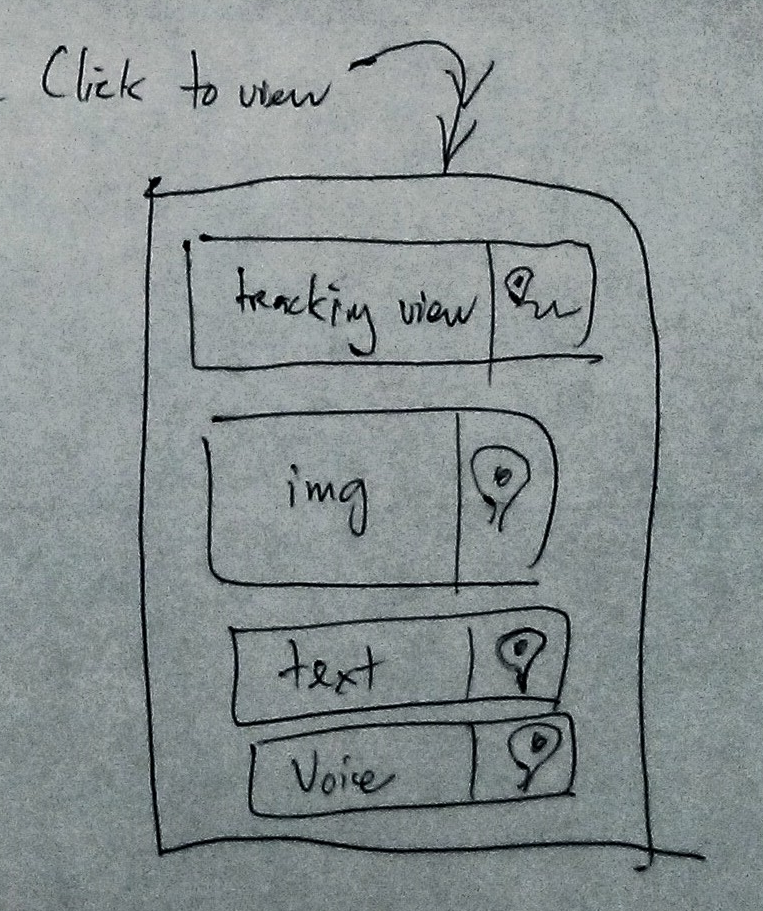 Click to view
tracking view
img
text
Voice